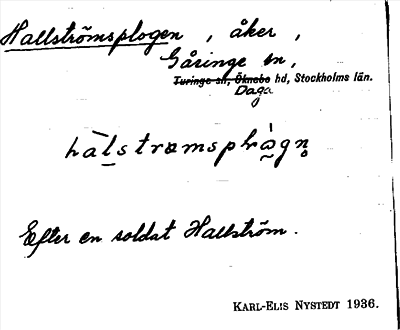 Hallströmsplogen, åker,
Gåringe sn,
Turinge sn, Öknebo hd, Stockholms län.
Daga
Efter en soldat Hallström.
KARL-ELIS NYSTEDT 1936.